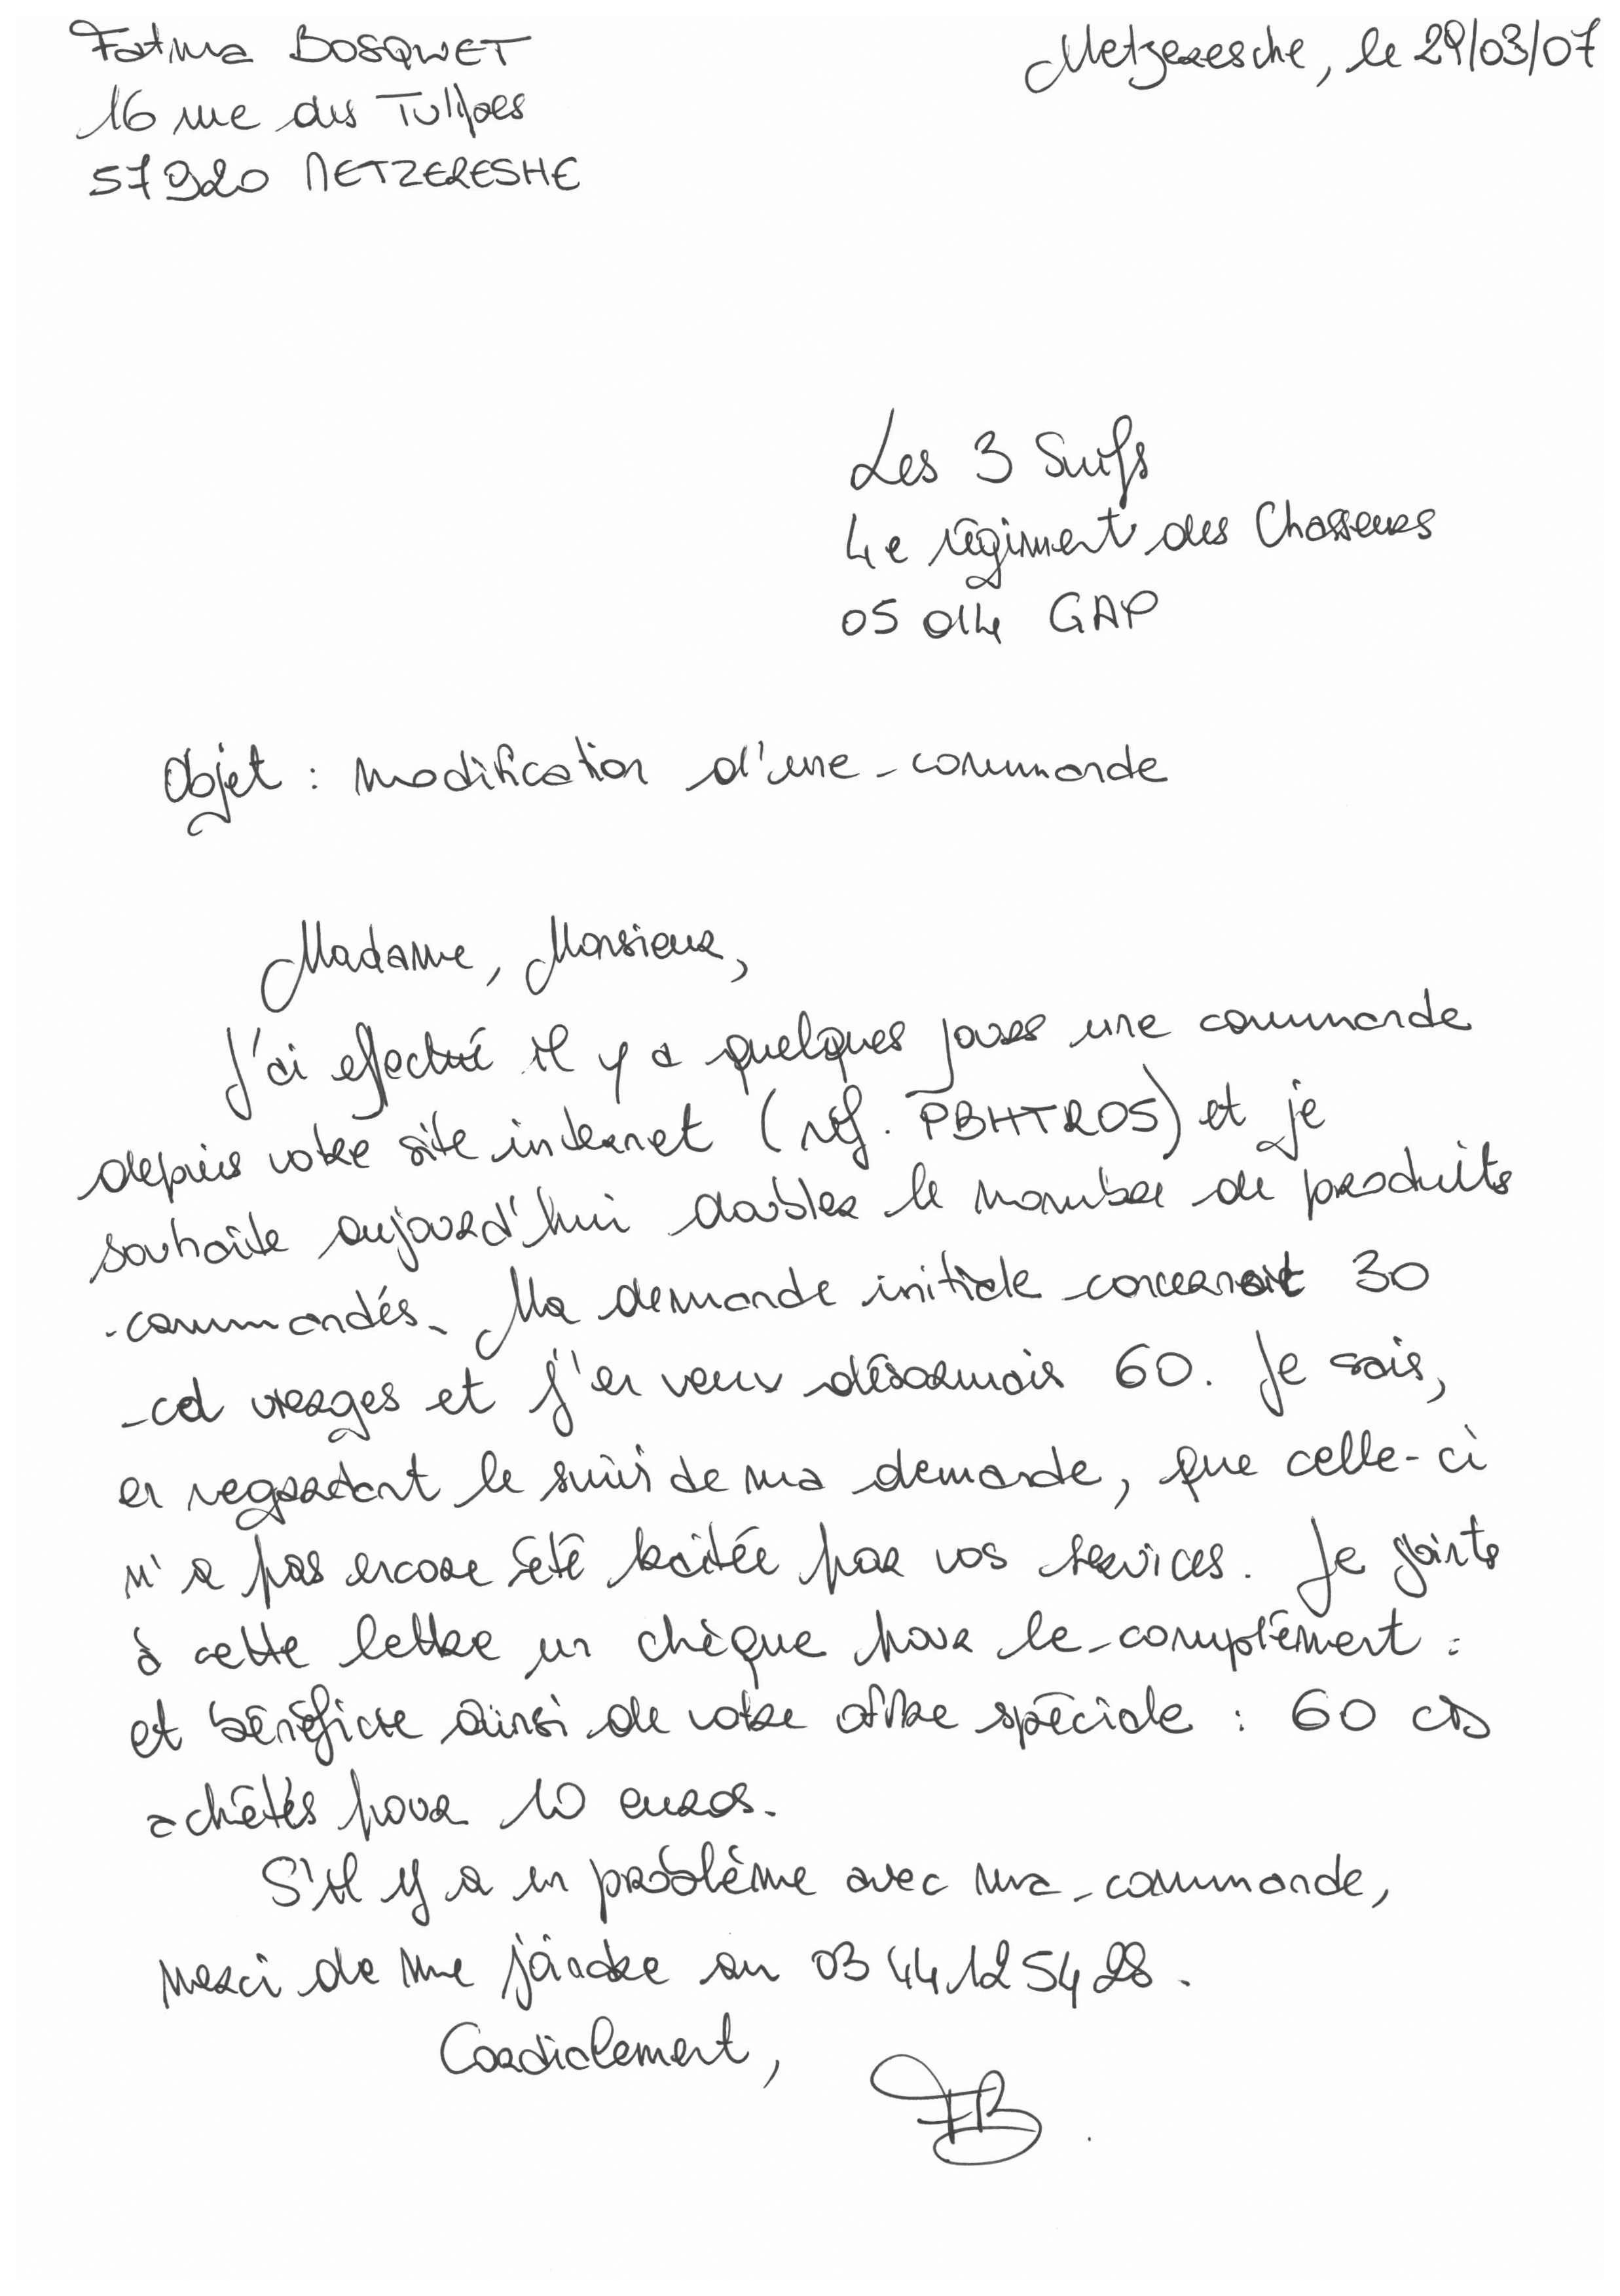 Fatma BOSQWET
16 rue des Tulipes
57920 METZERESHE
Metzeresche, le 29/03/07
Les 3 Suifs
4e régiment des Chasseurs
05 014 GAP
Objet : modification d'une commande
Madame, Monsieur,
J'ai effectué il y a quelques jours une commande
depuis votre site internet (réf. PBHTROS) et je
souhaite aujourd'hui doubler le nombre de produits
commandés. Ma demande initiale concernait 30
cd vierges et j'en veux désormais 60. Je sais,
en regardant le suivi de ma demande, que celle-ci
n'a pas encore été traitée par vos services. Je joints
à cette lettre un chèque pour le complément
et bénéficie ainsi de votre offre spéciale : 60 cds
achetés pour 10 euros.
S'il y a un problème avec ma commande,
merci de me joindre au 03 44 12 54 28.
Cordialement,
FB